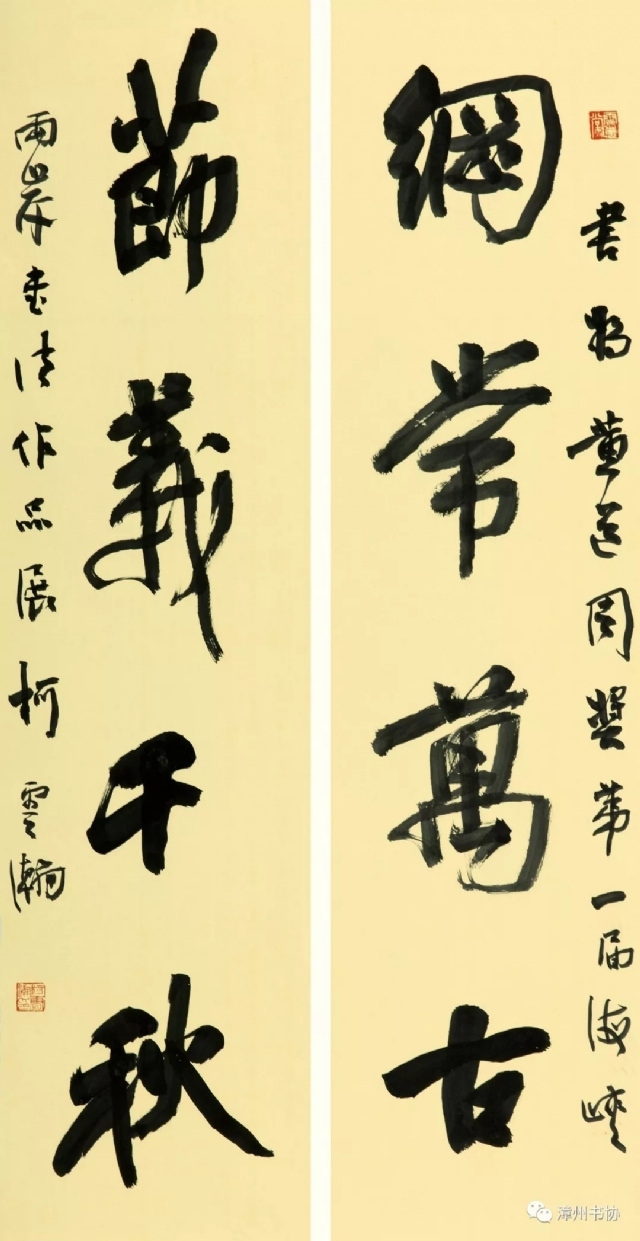 綱常萬古
書為黄道周奨第一届海峽
節義千秋
兩岸書法作品展柯雲瀚
漳州书协